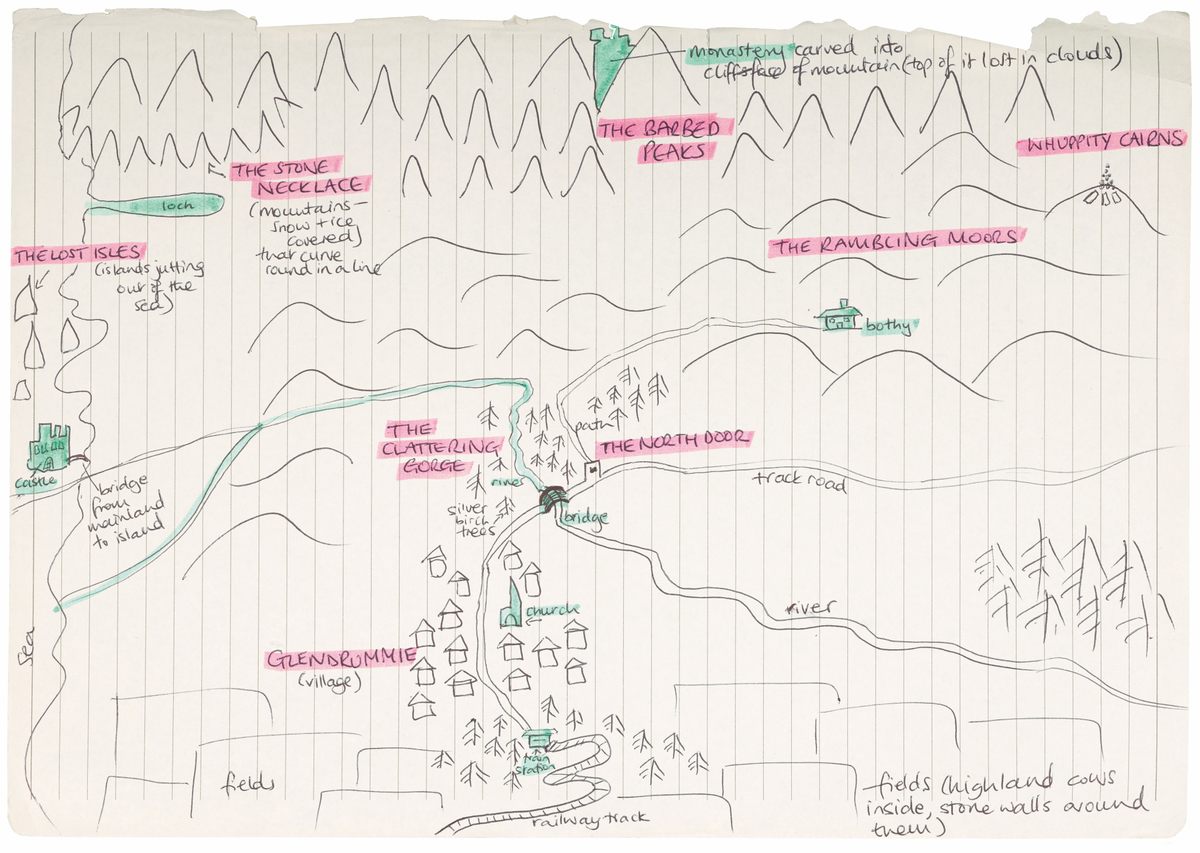 monastery carved into
cliffsface of mountain (top of it lost in clouds)
THE BARBED
PEAKS
WHUPPITY CAIRNS
THE STONE
NECKLACE
(mountains –
snow + ice
covered)
that curve
round in a line
loch
THE LOST ISLES
(islands jutting
out of the
sea)
THE RAMBLING MOORS
bothy
THE
CLATTERING
GORGE
path
THE NORTH DOOR
castle
bridge
from
mainland
to island
river
silver
birch
trees
bridge
track road
church
river
sea
GLENDRUMMIE
(village)
train
station
fields
railway track
fields (highland cows
inside, stone walls around
them)